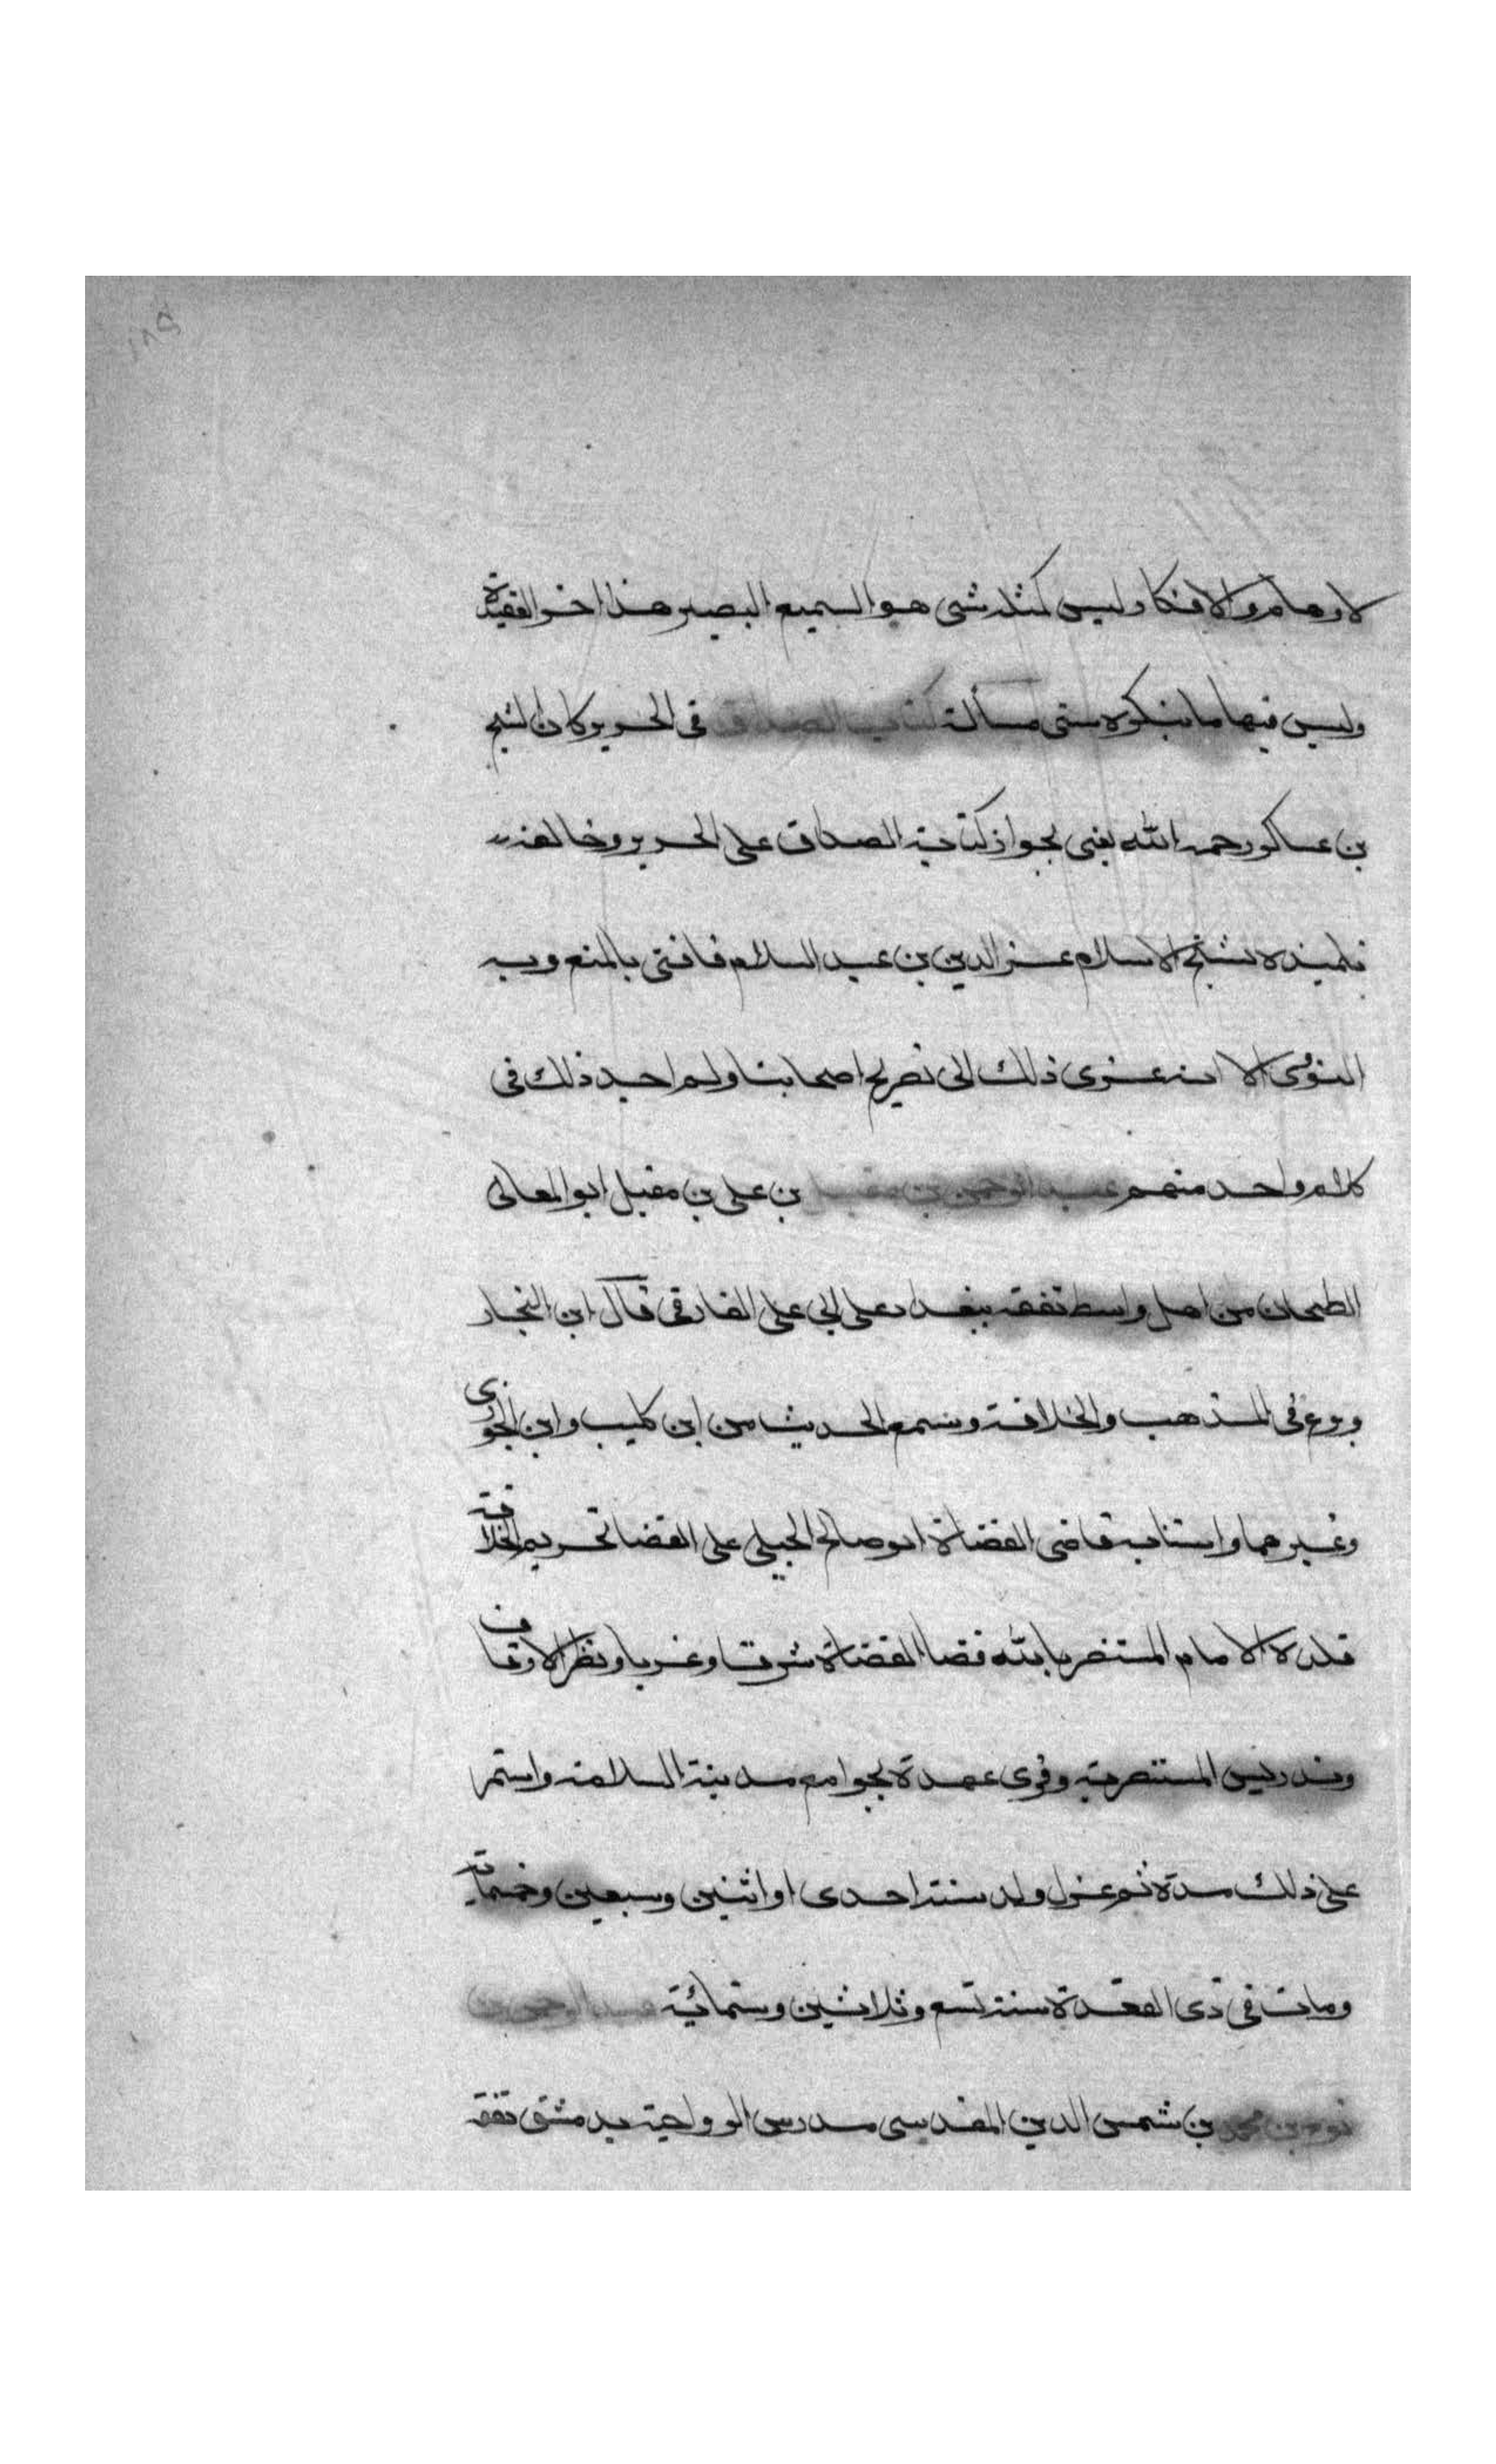 لاوهام والافكار وليس كمثله شى هو السميع البصير هذا اخر العقيدة
وليس فيها ما ينكره سنى مسألة كتاب الصداق فى الحرير كان الشيخ
بن عساكر رحمه الله يفتى بجواز كتابة الصداق على الحرير وخالفه
تلميذه شيخ الاسلام عز الدين بن عبد السلام فافتى بالمنع وبه
النووى الا انه عزى ذلك الى تصريح اصحابنا ولم اجد ذلك فى
كلام واحد منهم عبد الرحمن بن مقبل بن على بن مقبل ابو المعالى
الطحان من اهل واسط تفقه ببغداد على ابى على الفارقى قال ابن النجار
وبرع فى المذهب والخلافة وسمع الحديث من ابن كليب وابن الجوزى
وغيرهما واستنابه قاضى القضاة ابو صالح الجيلى على القضا بحريم الخلافة
قلده الامام المستنصر بالله قضا القضاة شرقا وغربا ونظر الاوقاف
وتدريس المستنصرية وقرى عهده بجوامع مدينة السلامة واستمر
على ذلك مدة ثم عزل ولد سنة احدى او اثنين وسبعين وخمسماية
ومات فى ذى القعدة سنة تسع وثلاثين وستمائية عبد الرحمن بن
نوح بن محمد بن شمس الدين المقدسى مدرس الرواحية بدمشق تفقه